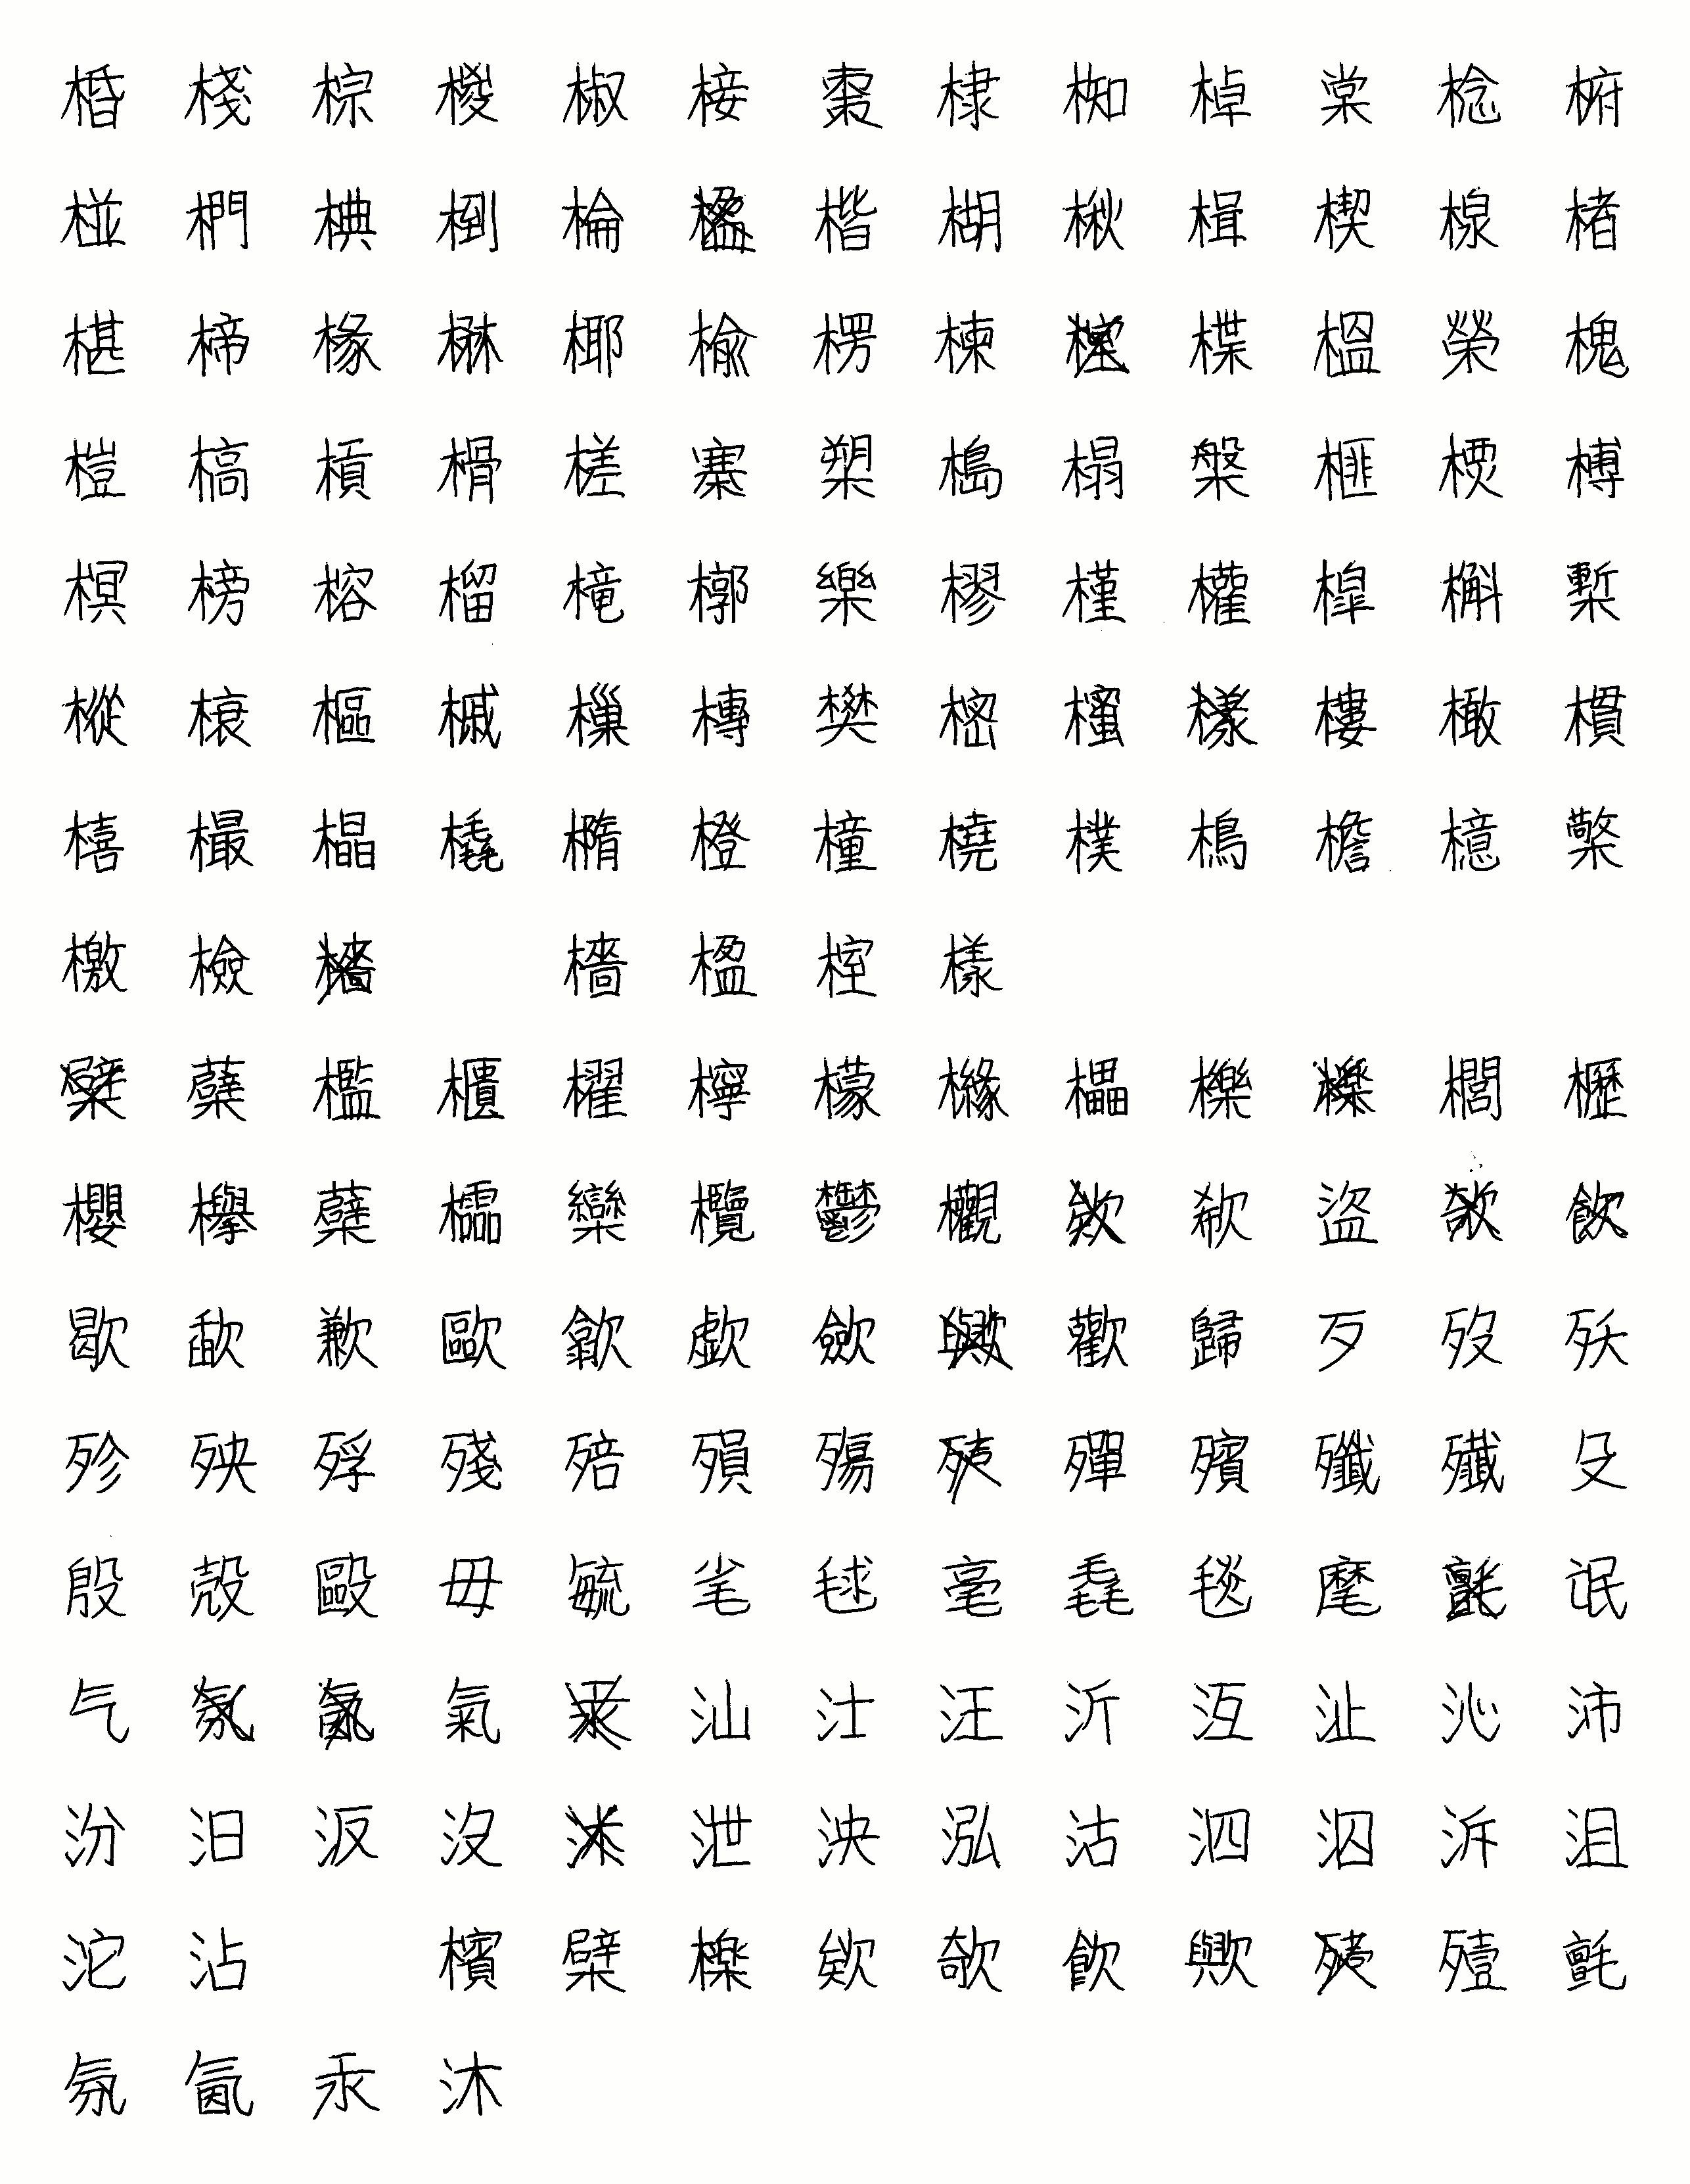 棔 棧 棕 椶 椒 椄 棗 棣 椥 棹 棠 棯 椨
椪 椚 椣 椡 棆 楷 楜 楸 楫 楔 楾 楮
椹 楴 椽 楙 椰 楡 楞 楝 楪 榲 榮 槐
榿 槁 槓 榾 槎 寨 槊 槝 榻 槃 榧 榑
榠 榜 榕 榴 槞 槨 樂 樛 槿 權 槹 槲 槧
樅 榱 樞 槭 樔 槫 樊 樒 櫁 樓 橄 樌
橲 樶 橸 橇 橢 橙 橦 橈 樸 樢 檐 檍 檠
檄 檢 檣 楹 榁 樣
蘗 檻 櫃 櫂 檸 檬 櫞 櫑 櫟 櫚 櫪
櫻 欅 蘖 櫺 欒 欖 鬱 欟 欷 盜 飮
歇 歃 歉 歐 歙 歔 歛 歡 歸 歹 歿 殀
殄 殃 殍 殘 殕 殞 殤 殫 殯 殲 殱 殳
殷 殼 毆 毋 毓 毟 毬 毫 毳 毯 麾 氓
气 氣 汕 汢 汪 沂 沍 沚 沁 沛
汾 汨 汳 沒 泄 泱 泓 沽 泗 泅 泝 沮
沱 沾 檳 檗 檪 欸 欹 飮 歟 殪 氈
氛 氤 汞 沐